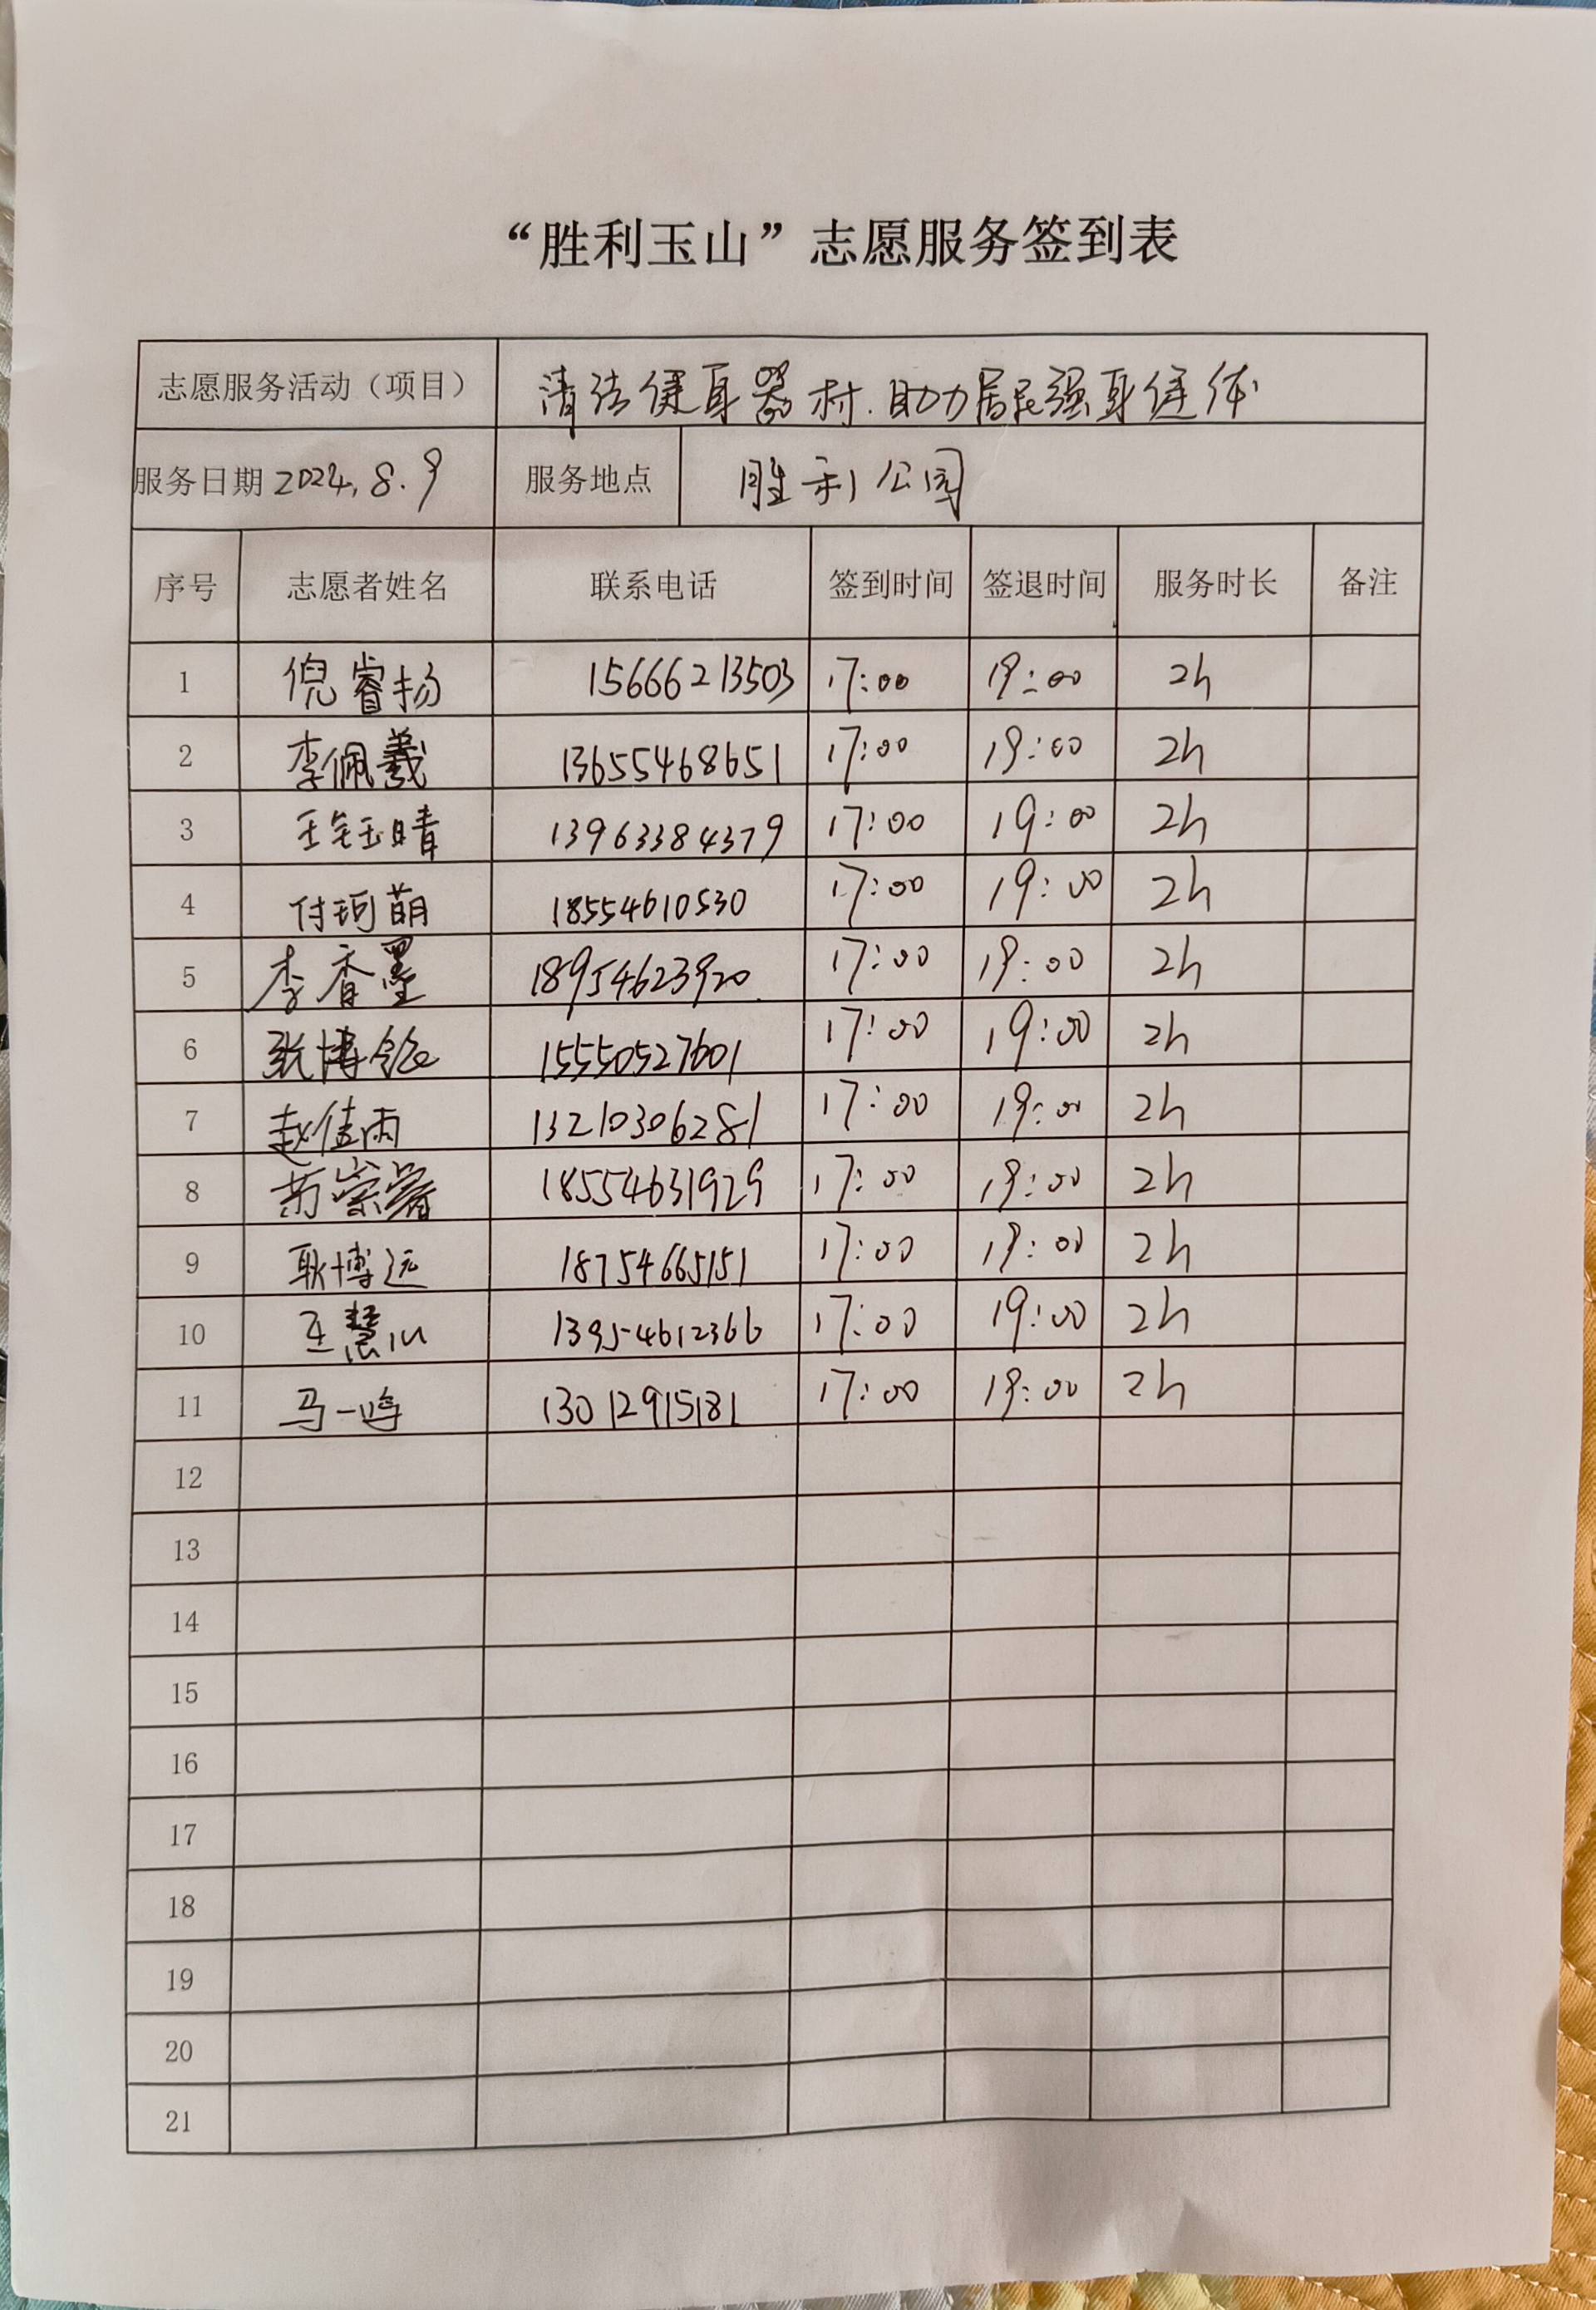 “胜利玉山”志愿服务签到表
志愿服务活动（项目） 清洁健身器材.助力居民强身健体
服务日期 2024.8.9 服务地点 胜利公园
序号 志愿者姓名 联系电话 签到时间 签退时间 服务时长 备注
1 倪睿扬 15666213503 17:00 19:00 2h
2 李佩羲 13655468651 17:00 19:00 2h
3 13963384379 17:00 19:00 2h
4 付珂萌 18554610530 17:00 19:00 2h
5 李香墨 18954623920 17:00 19:00 2h
6 张博 15550527601 17:00 19:00 2h
7 赵佳雨 13210306281 17:00 19:00 2h
8 18554631929 17:00 19:00 2h
9 耿博远 18754665151 17:00 19:00 2h
10 王慧 13954612366 17:00 19:00 2h
11 马一鸣 13012915181 17:00 19:00 2h
12
13
14
15
16
17
18
19
20
21